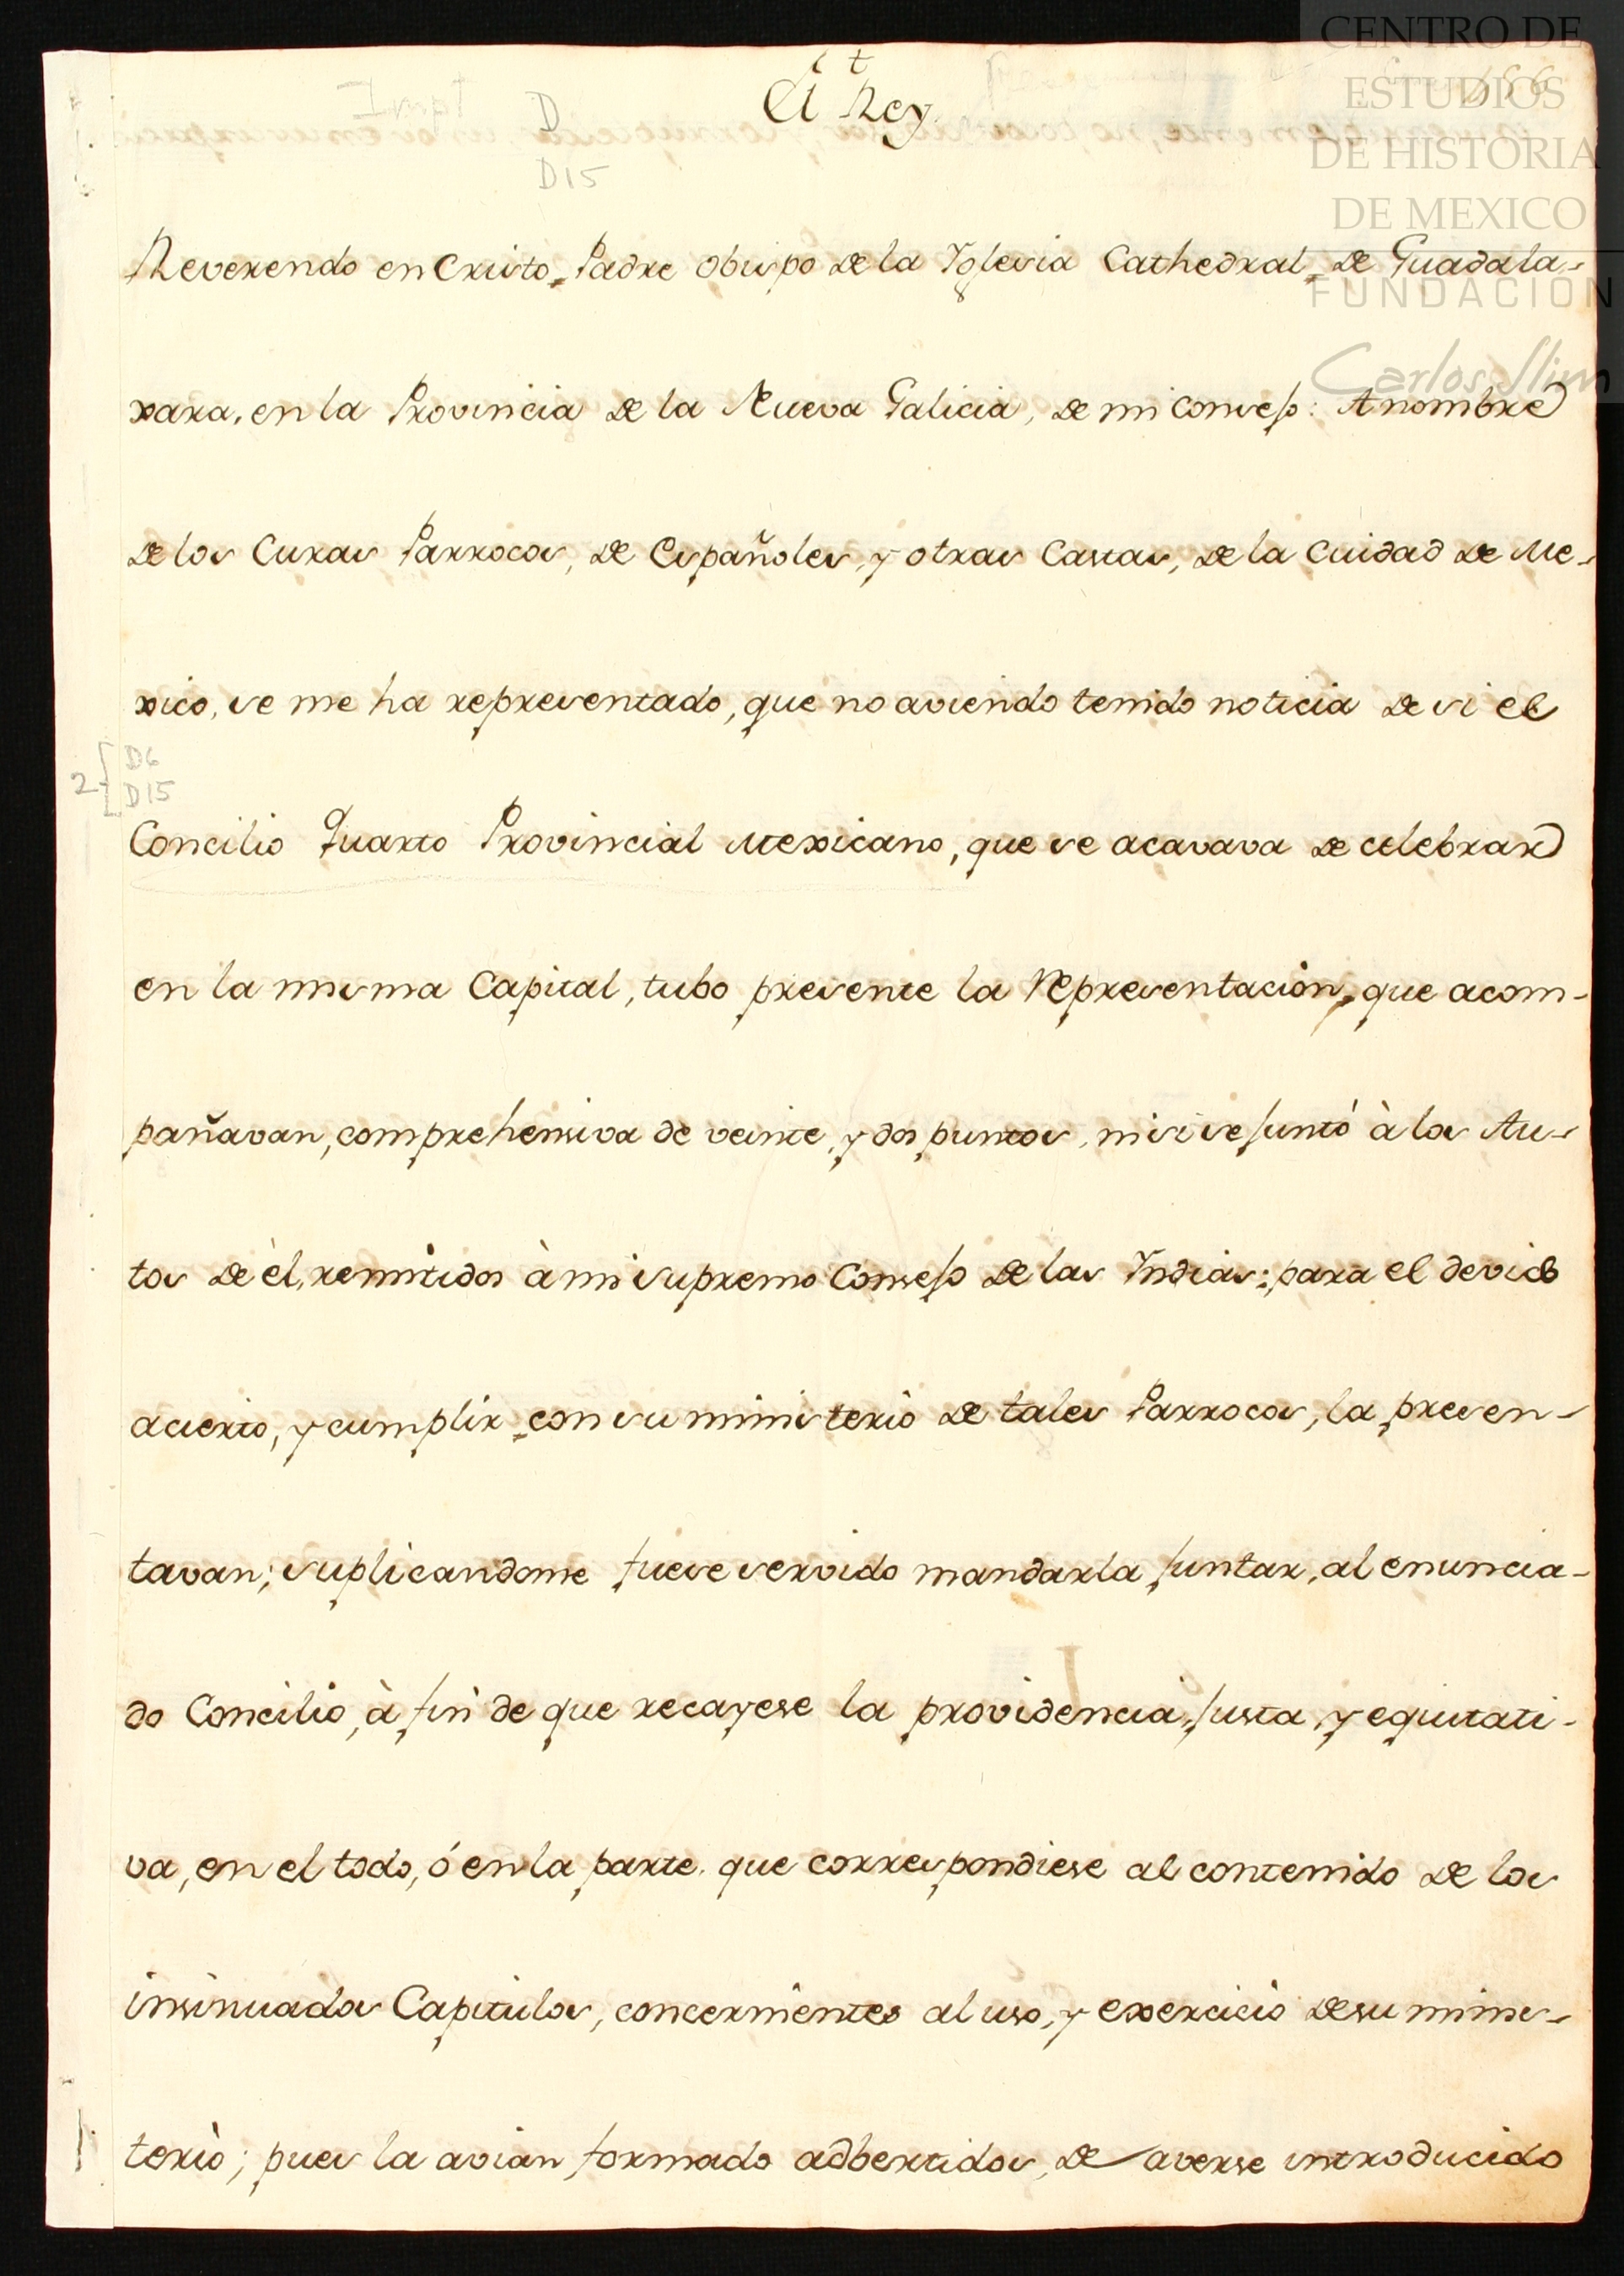 El Rey.
D
D15
156
CENTRO DE
ESTUDIOS
DE HISTORIA
DE MEXICO
FUNDACIÓN
Carlos Slim
Reverendo en Cristo, Padre Obispo de la Yglesia Cathedral, de Guadala-
xara, en la Provincia de la Nueva Galicia, de mi Consejo: A nombre
de los Curas Parrocos, de Españoles, y otras Castas, de la Cuidad de Me-
xico, se me ha representado, que no aviendo tenido noticia de si el
2 D6
D15
Concilio Quarto Provincial Mexicano, que se acavava de celebrar
en la misma Capital, tubo presente la Representacion, que acom-
pañavan, comprehensiva de veinte, y dos puntos, ni si se juntó à los Au-
tos de èl, remitidos à mi supremo Consejo de las Indias; para el deseado
acierto, y cumplir con su ministerio de tales Parrocos, la presen-
tavan; suplicandome fuese servido mandarla juntar, al enuncia-
do Concilio, à fin de que recayese la providencia, justa, y equitati-
va, en el todo, ó en la parte que correspondiese al contenido de los
insinuados Capitulos, concernientes al uso, y exercicio de su minis-
terio; pues la avian formado adbertidos, de averse introducido